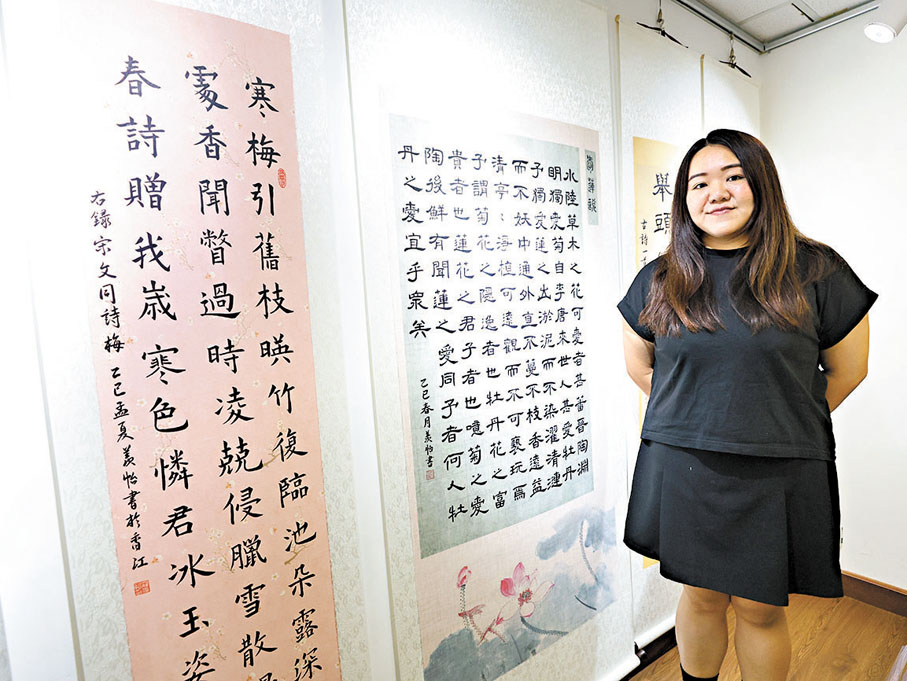 寒梅引舊枝暎竹復臨池朵露深
處香聞瞥過時凌兢侵臘雪散
春詩贈我歲寒色憐君冰玉姿
右錄宋文同詩梅 乙巳孟夏美怡書於香江
愛蓮說
水陸草木之花可愛者甚蕃晉陶淵
明獨愛菊自李唐來世人甚愛牡丹
予獨愛蓮之出淤泥而不染濯清漣
而不妖中通外直不蔓不枝香遠益
清亭:淨植可遠觀而不可褻玩焉
予謂菊花之隱逸者也牡丹花之富
貴者也蓮花之君子者也噫菊之愛
陶後鮮有聞蓮之愛同予者何人牡
丹之愛宜乎衆矣
乙巳春月美怡書
舉頭
古詩一